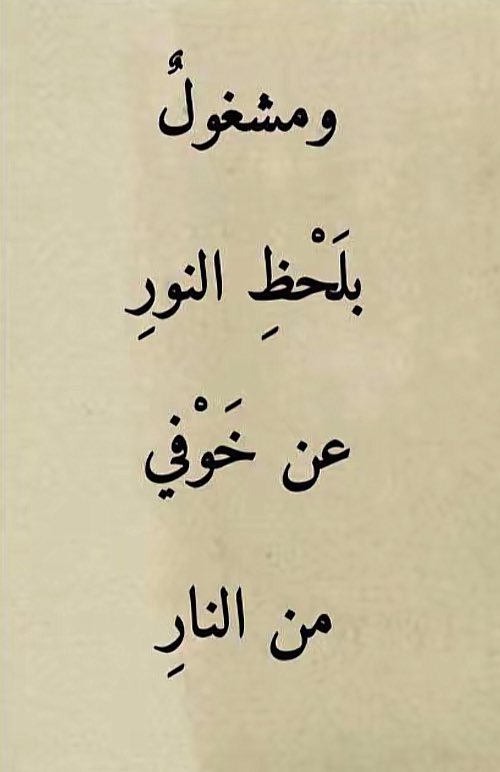 ومشغولٌ
بلَحْظِ النورِ
عن خَوْفي
من النارِ